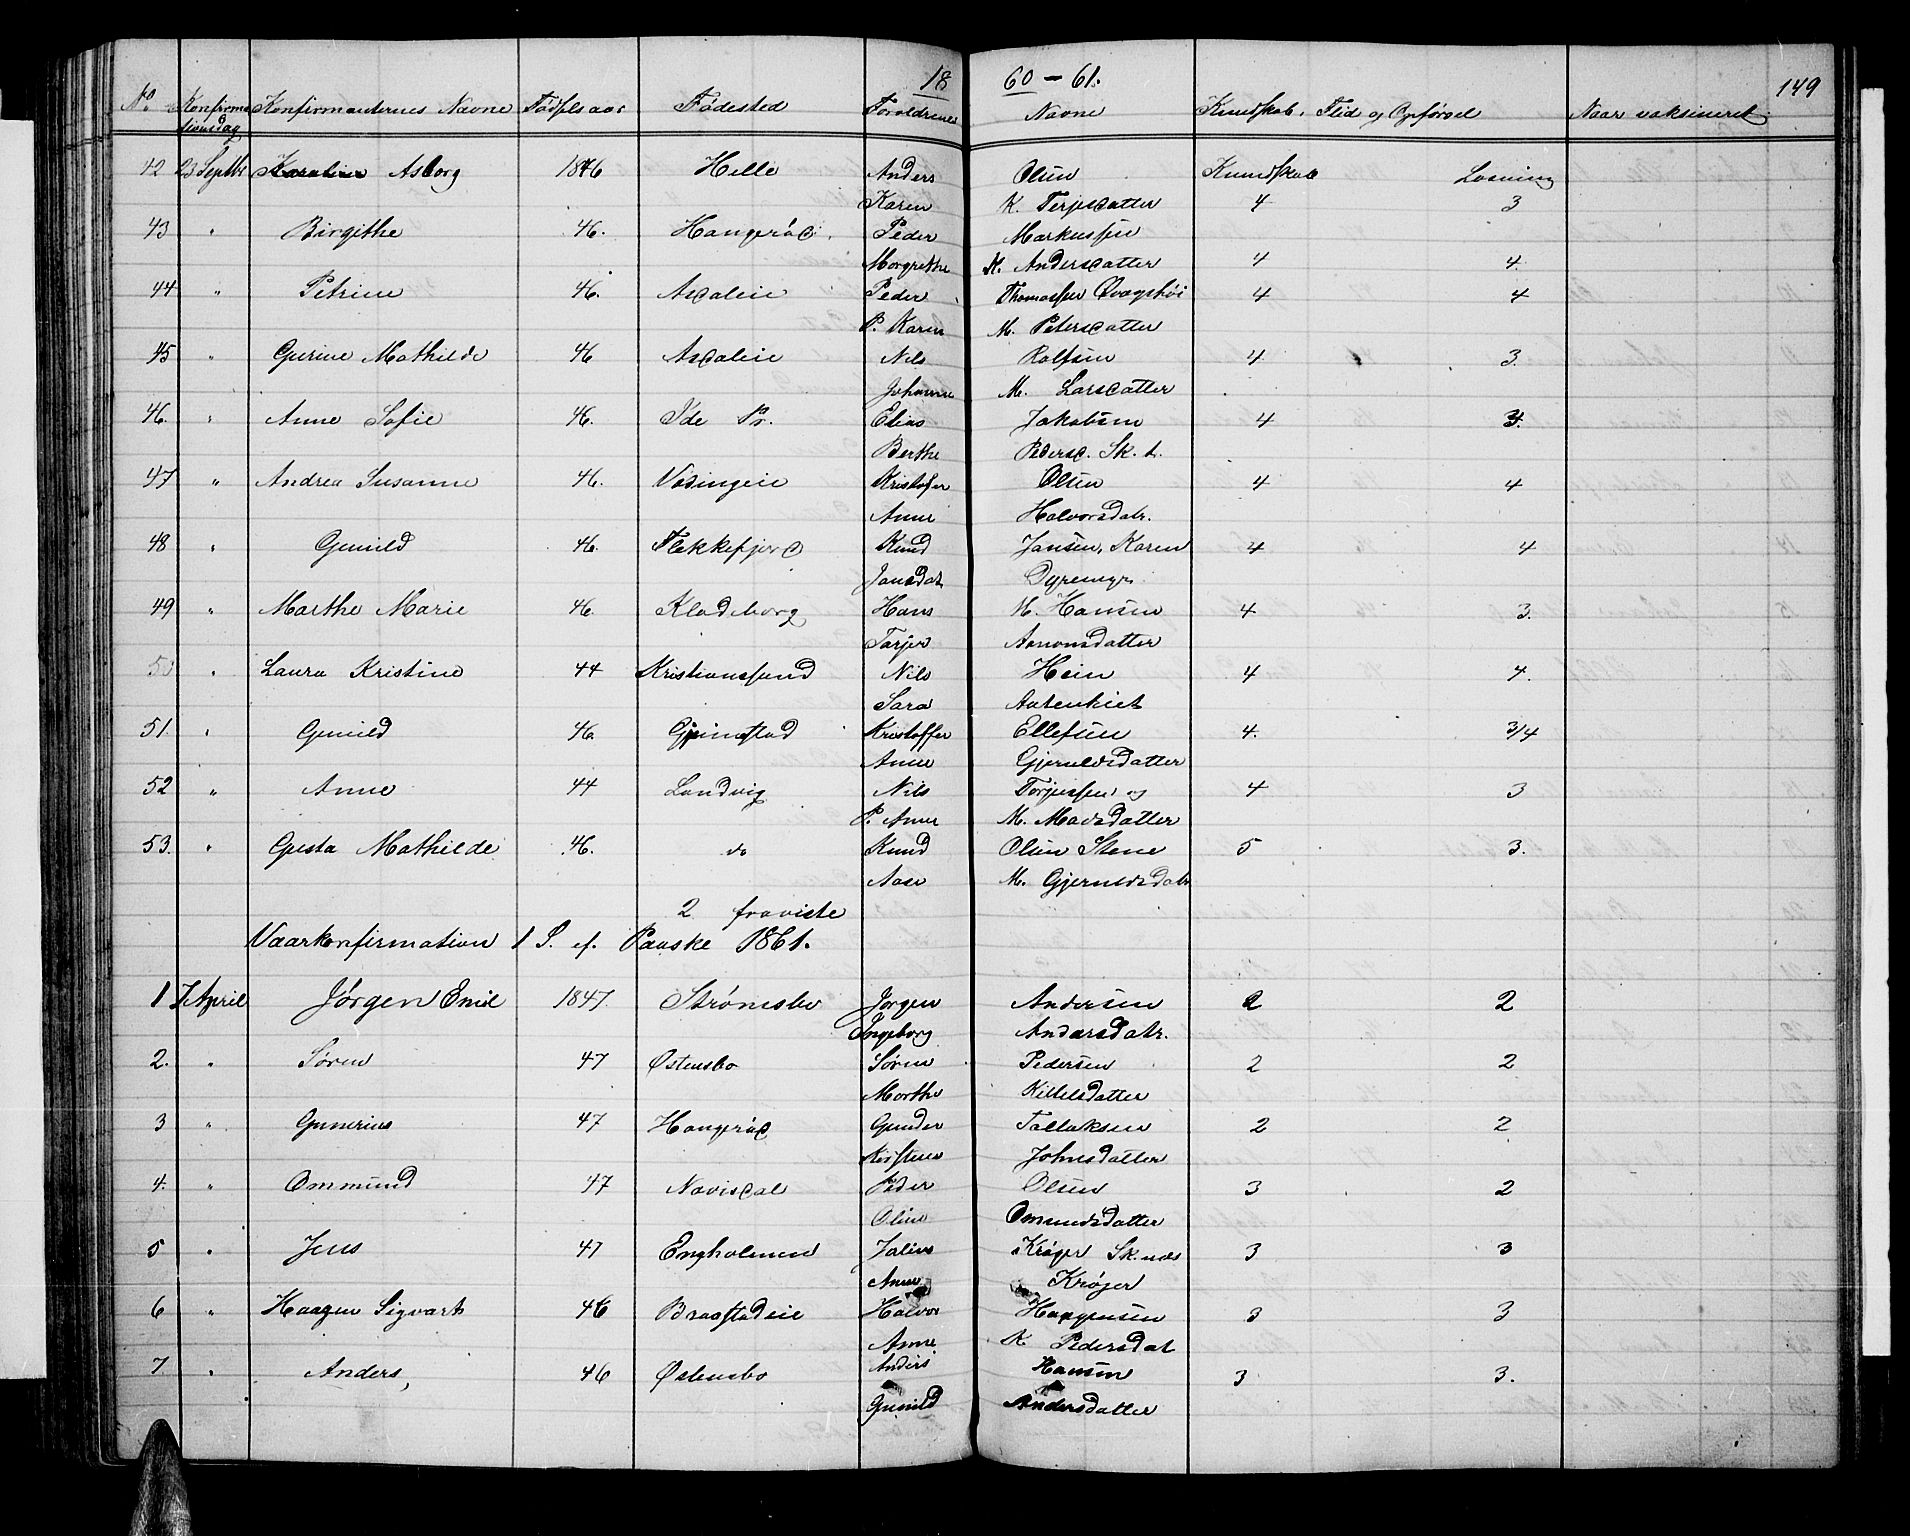 18 60 - 61. 149
No Konfirmationsdag Konfirmanternes Navne Fødselsaar Fødested Foreldrenes Navne Kundskab, Flid og Opførsel Naar vaksineret
42 23 Septbr Karoline Asborg 1846 Helle Anders Olsen Kundskab Læsning
Karen K. Terjesdatter 4 3
43 " Birgithe 46. Hangeråd Peder Markussen
Morgrethe M. Andersdatter 4 4.
44 " Petrine 46. Asdaleie Peder Thomassen 4 4
P. Karen M. Petersdatter
45 " Gurine Mathilde 46 Asdaleie Nils Rolfsen 4 3.
Johanne M. Larsdatter
46. " Anne Sofie 46. Ide Pr. Elias Jakobsen 4 3.
Berthe Pedersd. Sk. t.
47 " Andrea Susanne 46. Kristofer Olsen 4 4
Anne Halvorsdatr.
48 " Gunild 46. Flekkefjord Knud Jansen, Karen 4 4
Jansdat Dyremyr
49 " Marthe Marie 46. Kladeborg Hans M. Hansen 4 3.
Tarjer Aanonsdatter
50 " Laura Kristine 44 Kristianssund Nils Hein 4 4.
Sara
51. " Gunild 46. Grimstad Kristoffer Ellefsen 4. 3/4
Anne Gjeruldsdatter
52 " Anne 44 Landvig Nils Torjussen og 4 3
P. Anne M. Madsdatter
53. " Gusta Mathilde 46. do Knud Olsen Stene 5 3.
Aase M. Gjeruldsdatr
2 fraviste
Vaarkonfirmation 1 S. ef. Paaske 1861.
1 7 April Jørgen Emil 1847. Strømsbo Jørgen Andersen 2 2
Ingeborg Andersdatr.
2. " Søren 47 Østensbo Søren Pedersen 2 2
Morthe Kittelsdatter
3 " Gunerius 47 Hangeråd Gunder Tallaksen 2 2
Kirstene Johnsdatter
4. " Ommund 47 Navisdal Peder Olsen 3 2
Oline Omundsdatter
5 " Jens 47 Engholmen Julius Krøger 3 3
Anne Krøger
6 " Haagen Sigvart 46 Braastadeie Halvor Haagensen 3 3
Anne K Pedersdat
7. " Anders, 46 Østensbo Anders Hansen 3 3.
Gunild Andersdatter